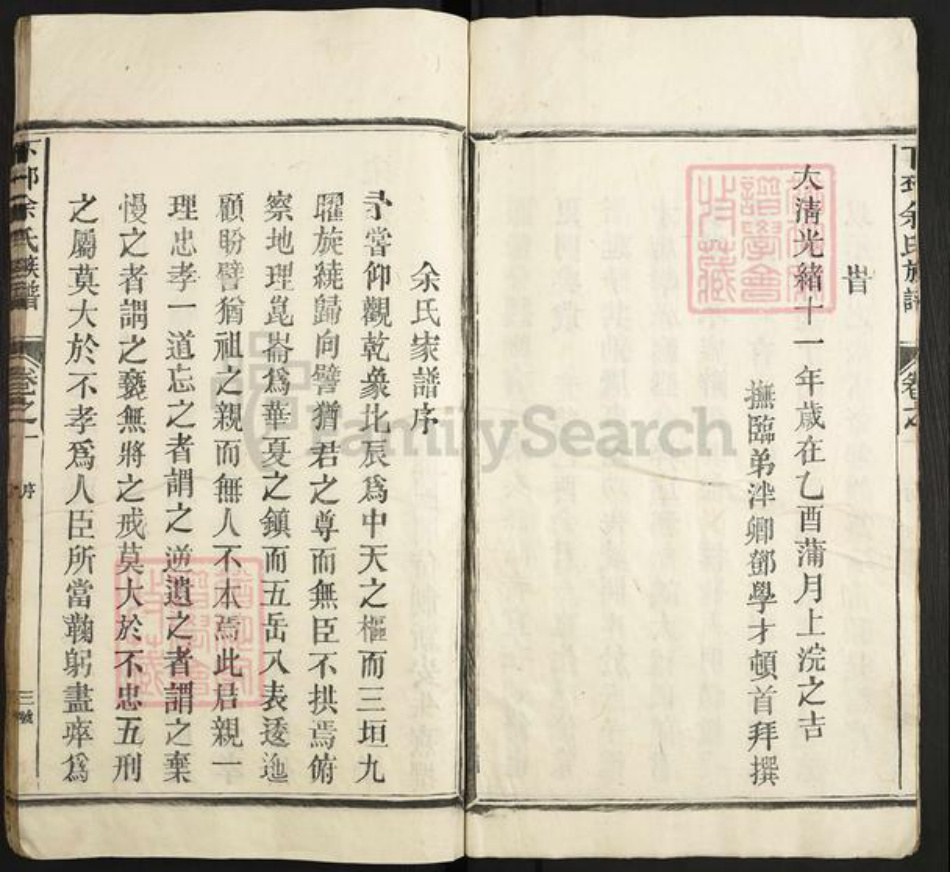 下邳余氏族譜
卷之
旹
大清光緒十一年歲在乙酉蒲月上浣之吉
撫臨弟泮卿鄧學才頓首拜撰
余氏家譜序
予嘗仰觀乾象北辰爲中天之樞而三垣九
曜旋繞歸向譬猶君之尊而無臣不拱焉俯
察地理崑崙爲華夏之鎮而五岳八表逶迤
顧盼譬猶祖之親而無人不本焉此君親一
理忠孝一道忘之者謂之逆遺之者謂之棄
慢之者謂之褻無將之戒莫大於不忠五刑
之屬莫大於不孝爲人臣所當鞠躬盡瘁爲
下邳余氏族譜
卷之一
序
三號
譜學會
收藏
FamilySearch